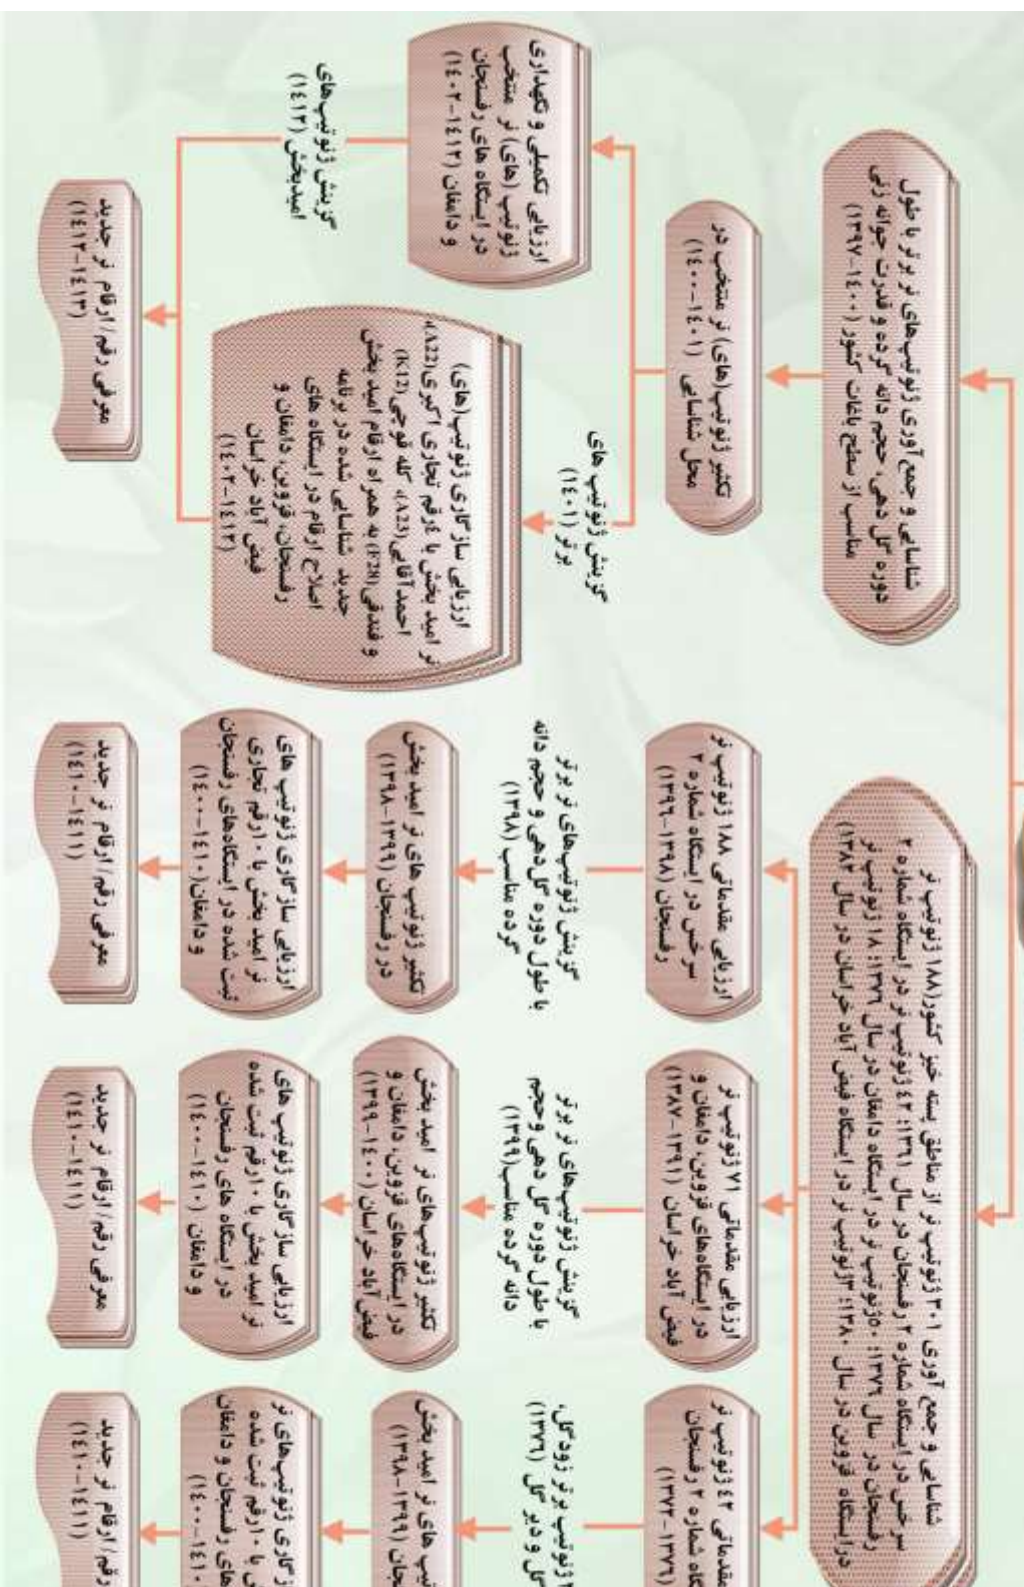 شناسایی و جمع آوری ژنوتیپ‌های نر برتر با طول
دوره گل دهی، حجم دانه گرده و قدرت جوانه زنی
مناسب از سطح باغات کشور (۱۴۰۰-۱۳۹۷)
تکثیر ژنوتیپ(های) نر منتخب در
محل شناسایی (۱۴۰۱-۱۴۰۰)
ارزیابی تکمیلی و نگهداری
ژنوتیپ (های) نر منتخب
در ایستگاه های رفسنجان
و دامغان (۱۴۱۲-۱۴۰۲)
گزینش ژنوتیپ‌های
امیدبخش (۱۴۱۲)
گزینش ژنوتیپ های
برتر (۱۴۰۱)
ارزیابی سازگاری ژنوتیپ(های)
نر امید بخش با ٤رقم تجاری اکبری(A22)،
احمدآقایی(A23)، کله قوچی(K12)
و فندقی(F28) به همراه ارقام امید بخش
جدید شناسایی شده در برنامه
اصلاح ارقام در ایستگاه های
رفسنجان، قزوین، دامغان و
فیض آباد خراسان
(۱۴۱۲-۱۴۰۲)
معرفی رقم/ ارقام نر جدید
(۱۴۱۳-۱۴۱۲)
شناسایی و جمع آوری ۳۰۱ ژنوتیپ نر از مناطق پسته خیز کشور(۱۸۸ ژنوتیپ نر
سرخس در ایستگاه شماره ۲ رفسنجان در سال ۱۳۶۱؛ ۴۲ژنوتیپ نر در ایستگاه شماره ۲
رفسنجان در سال ۱۳۷۶؛ ۵۰ژنوتیپ نر در ایستگاه دامغان در سال ۱۳۷۶؛ ۱۸ ژنوتیپ نر
درایستگاه قزوین در سال ۱۳۸۰؛ ۳ژنوتیپ نر در ایستگاه فیض آباد خراسان در سال ۱۳۸۲)
ارزیابی مقدماتی ۱۸۸ ژنوتیپ نر
سرخس در ایستگاه شماره ۲
رفسنجان (۱۳۹۸-۱۳۹۶)
گزینش ژنوتیپ‌های نر برتر
با طول دوره گل دهی و حجم دانه
گرده مناسب (۱۳۹۸)
تکثیر ژنوتیپ های نر امید بخش
در رفسنجان (۱۳۹۹-۱۳۹۸)
ارزیابی سازگاری ژنوتیپ های
نر امید بخش با ۱۰رقم تجاری
ثبت شده در ایستگاه‌های رفسنجان
و دامغان(۱۴۱۰-۱۴۰۰)
معرفی رقم/ ارقام نر جدید
(۱۴۱۱-۱۴۱۰)
ارزیابی مقدماتی ۷۱ ژنوتیپ نر
در ایستگاه‌های قزوین، دامغان و
فیض آباد خراسان (۱۳۹۱-۱۳۸۷)
گزینش ژنوتیپ‌های نر برتر
با طول دوره گل دهی وحجم
دانه گرده مناسب(۱۳۹۹)
تکثیر ژنوتیپ‌های نر امید بخش
در ایستگاه‌های قزوین، دامغان و
فیض آباد خراسان (۱۴۰۰-۱۳۹۹)
ارزیابی سازگاری ژنوتیپ های
نر امید بخش با ۱۰رقم ثبت شده
در ایستگاه های رفسنجان
و دامغان (۱۴۱۰-۱۴۰۰)
معرفی رقم/ ارقام نر جدید
(۱۴۱۱-۱۴۱۰)
مقدماتی ۴۲ ژنوتیپ نر
شماره ۲ رفسنجان
(۱۳۷۶-۱۳۷۳)
ژنوتیپ برتر زودگل،
گل و دیر گل (۱۳۷۶)
های نر امید بخش
(۱۳۹۹-۱۳۹۸)
ژنوتیپ‌های نر
با ۱۰رقم ثبت شده
های رفسنجان و دامغان
(۱۴۱۰-۱۴۰۰)
رقم/ ارقام نر جدید
(۱۴۱۱-۱۴۱۰)